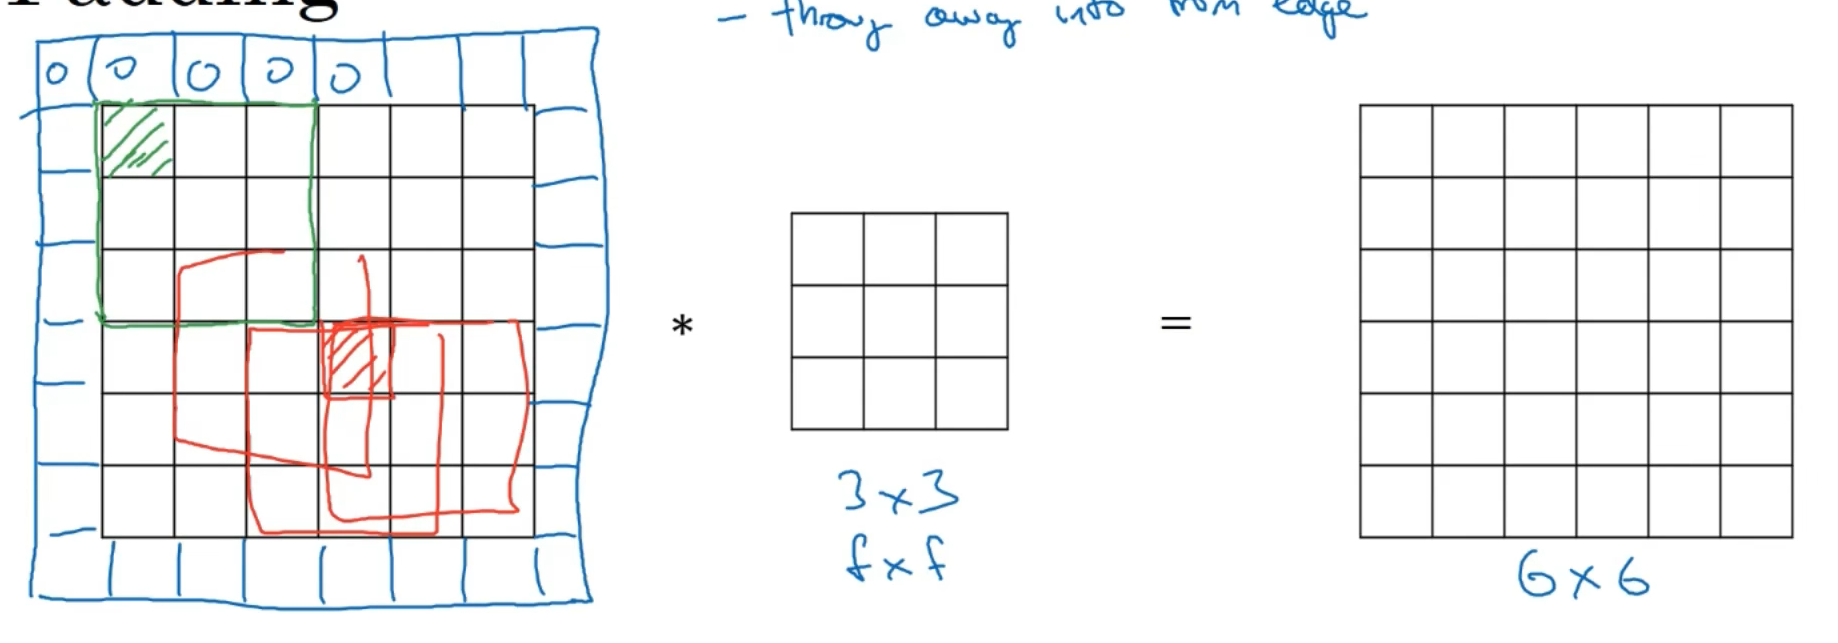 Padding
- throw away info from edge
0 0 0 0 0
* =
3x3
fxf
6x6